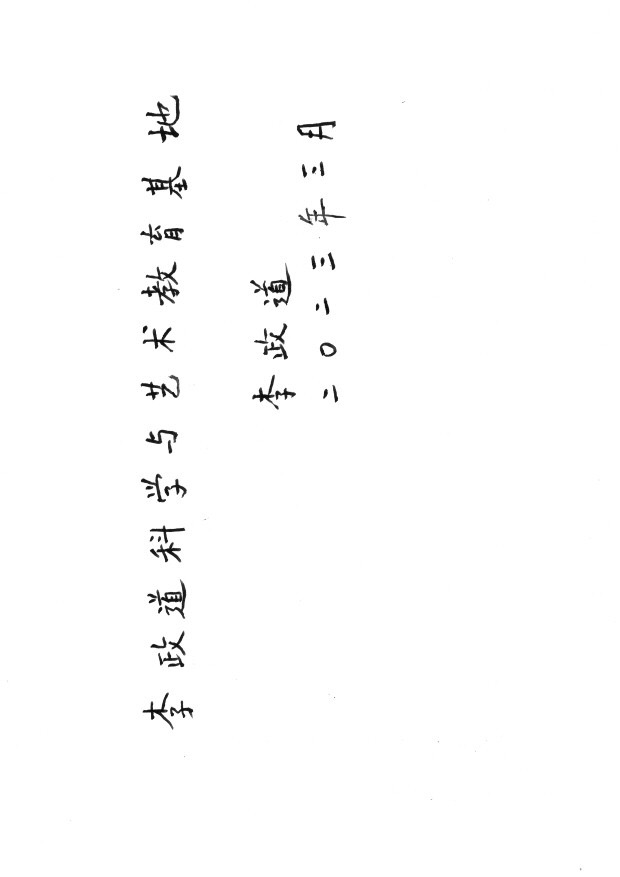 李政道科学与艺术教育基地
李政道
二〇二三年三月